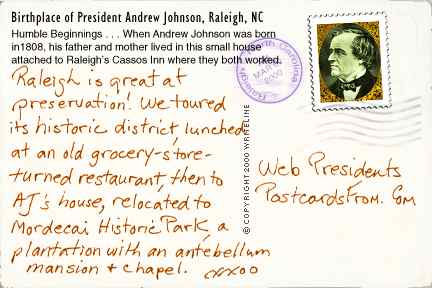 Birthplace of President Andrew Johnson, Raleigh, NC
Humble Beginnings . . . When Andrew Johnson was born
in1808, his father and mother lived in this small house
attached to Raleigh's Cassos Inn where they both worked.
Raleigh is great at
preservation! We toured
its historic district, lunched
at an old grocery-store-
turned restaurant, then to
AJ's house, relocated to
Mordecai Historic Park, a
plantation with an antebellum
mansion + chapel. xxxoo
© COPYRIGHT 2000 WRITELINE
Raleigh, North Carolina
MAR
2000
Web Presidents
PostcardsFrom.Com